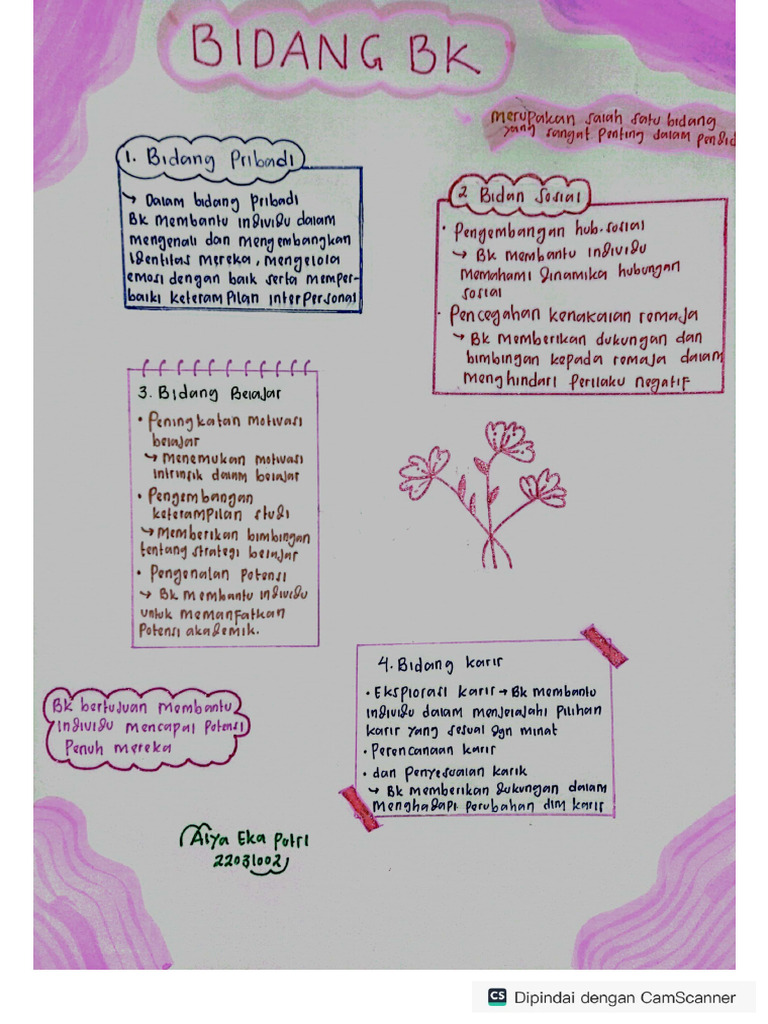 BIDANG BK
merupakan salah satu bidang
yang sangat penting dalam pendid
1. Bidang Pribadi
→ Dalam bidang pribadi
BK membantu individu dalam
mengenali dan mengembangkan
identitas mereka, mengelola
emosi dengan baik serta memper-
baiki keterampilan interpersonal
2 Bidan Sosial
• Pengembangan hub. sosial
→ BK membantu individu
memahami dinamika hubungan
sosial
• Pencegahan kenakalan remaja
→ BK memberikan dukungan dan
bimbingan kepada remaja dalam
menghindari perilaku negatif
3. Bidang Belajar
• Peningkatan motivasi
belajar
→ Menemukan motivasi
intrinsik dalam belajar
• Pengembangan
keterampilan studi
→ Memberikan bimbingan
tentang strategi belajar
• Pengenalan potensi
→ BK membantu individu
untuk memanfatkan
potensi akademik.
4. Bidang karir
• Eksplorasi karir → BK membantu
individu dalam menjelajahi pilihan
karir yang sesuai dgn minat
• Perencanaan karir
• dan Penyesuaian karik
→ BK memberikan dukungan dalam
menghadapi perubahan dlm karir
BK bertujuan membantu
individu mencapai potensi
penuh mereka
Alya Eka Putri
22031002
CS Dipindai dengan CamScanner